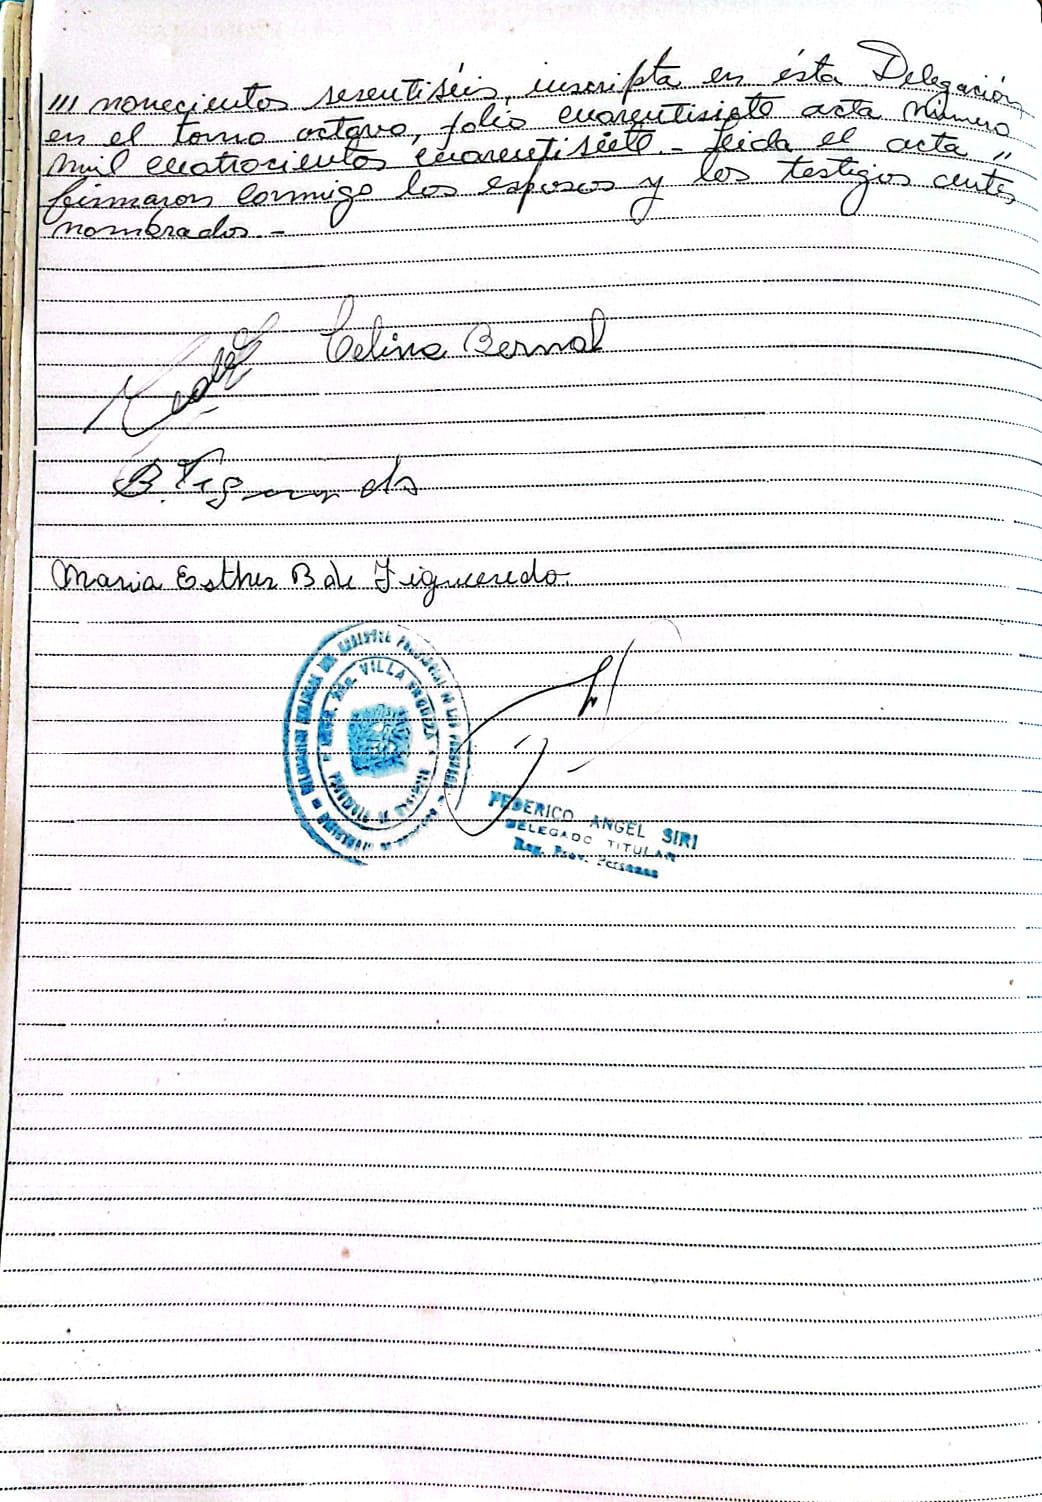 /// novecientos sesentiséis, inscripta en ésta Delegación
en el tomo octavo, folio cuarentisiete acta número
mil cuatrocientos cuarentisiete.- Leida el acta "
firmaron conmigo los esposos y los testigos antes
nombrados.-
Celina Bernal
B.
Maria Esther B de Figueredo.
VILLA URQUIZA
FEDERICO ANGEL SIRI
DELEGADO TITULAR
Reg. Prov. Personas